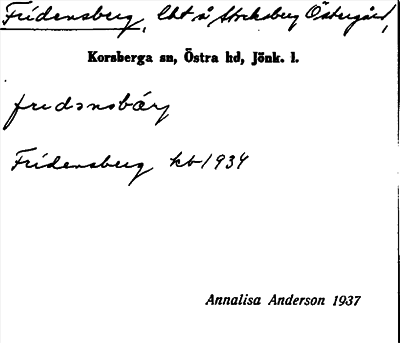 Fridensberg, lht å Stocksberg Östergård,
Korsberga sn, Östra hd, Jönk. l.
fridənsbárj
Fridensberg kb 1934
Annalisa Anderson 1937